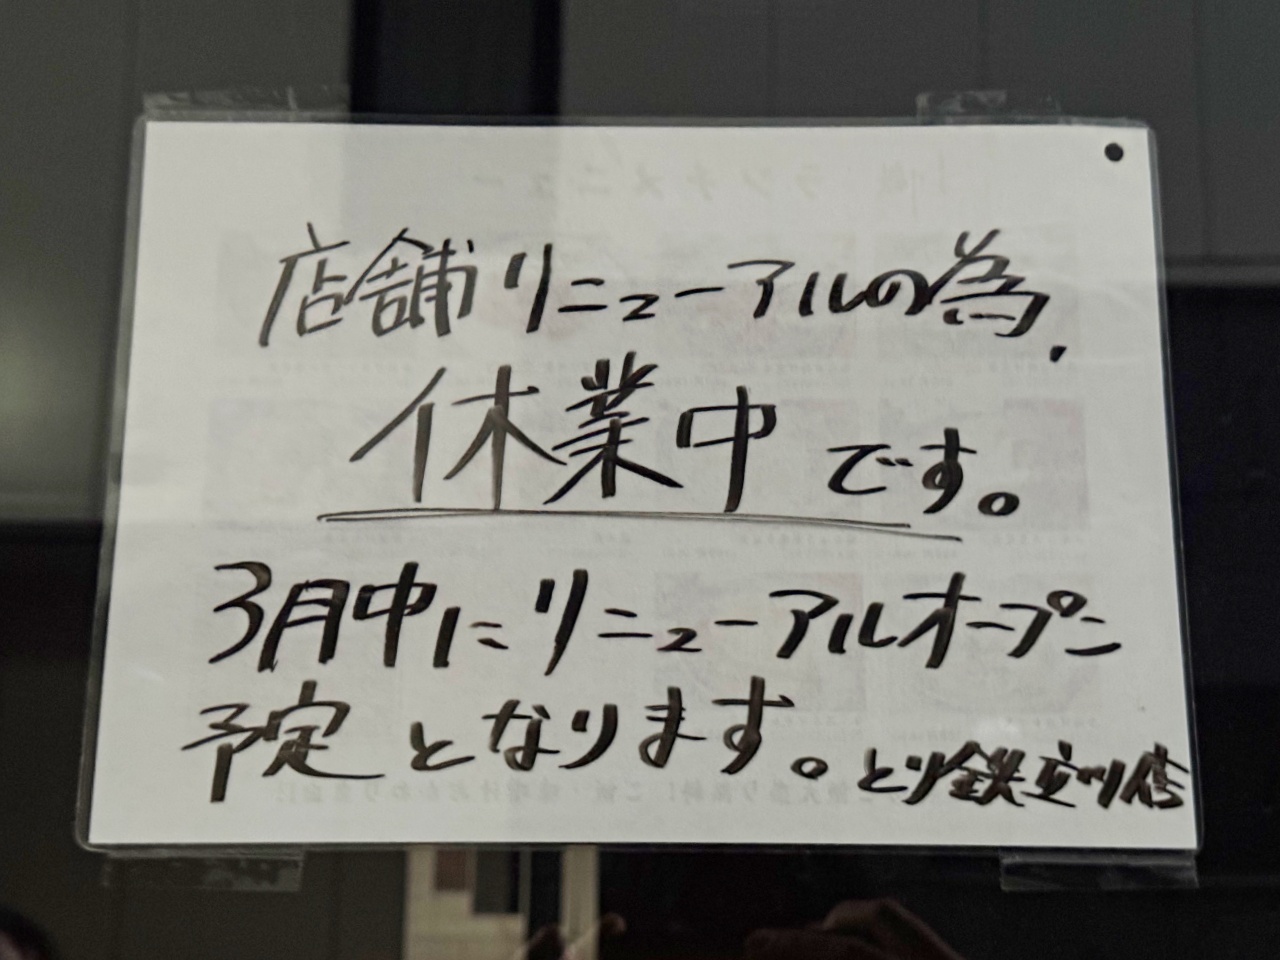 店舗リニューアルの為、
休業中です。
3月中にリニューアルオープン
予定となります。とり鉄立川店